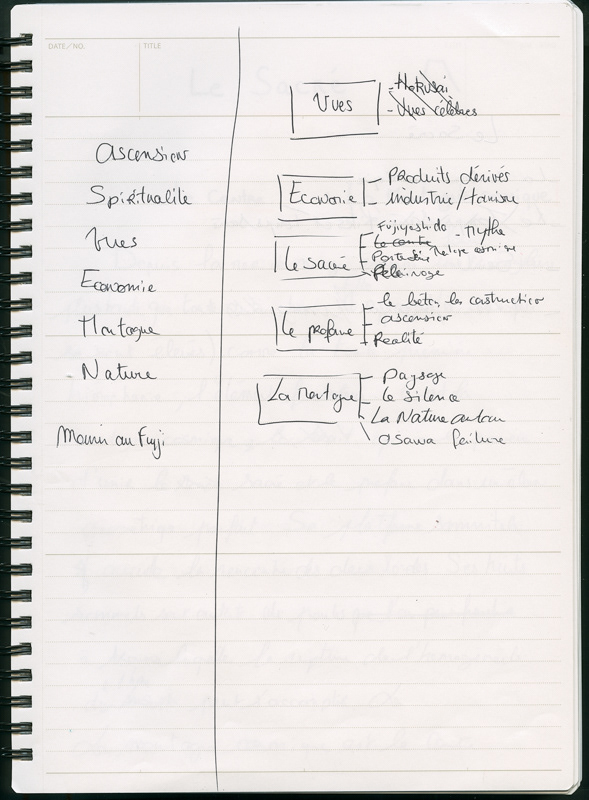 DATE/NO.
TITLE
Ascension
Spiritualité
Vues
Economie
Montagne
Nature
Mourir au Fuji
Vues
- Hokusai
- Vues célèbres
Economie
Produits dérivés
industrie/
Le sacré
Fujiyoshida - Mythe
Le conte
Pélérinage
Le profane
le béton, les constructions
ascension
Réalité
La Montagne
Paysage
le silence
La Nature autour
Osawa failure